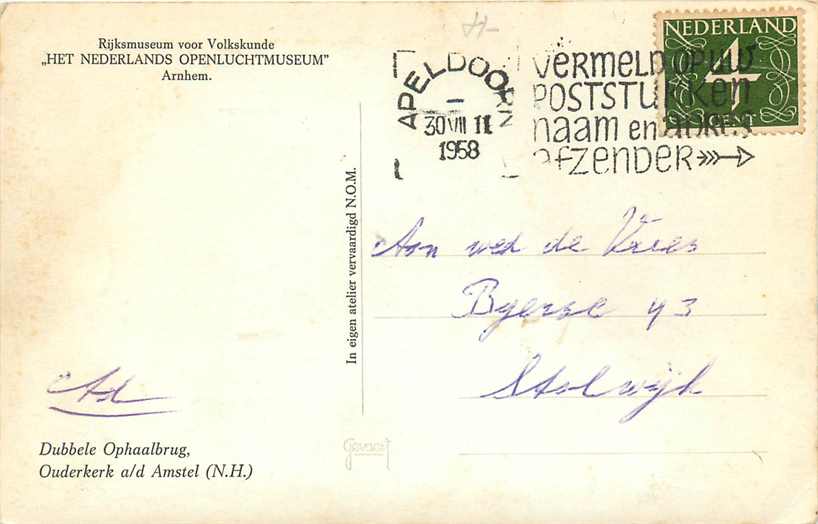 Rijksmuseum voor Volkskunde
„HET NEDERLANDS OPENLUCHTMUSEUM”
Arnhem.
APELDOORN
30 VII 11
1958
VERMELD OP UW
POSTSTUKKEN
naam en adres
afzender
NEDERLAND
4
CENT
In eigen atelier vervaardigd N.O.M.
Aan wed de Vries
43
Stolwijk
Ad
Dubbele Ophaalbrug,
Ouderkerk a/d Amstel (N.H.)
Gevaert